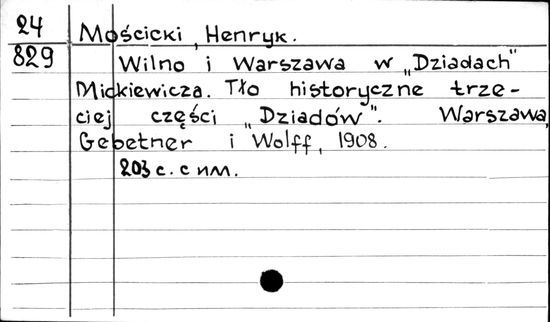 24 Mościcki, Henryk.
829 Wilno i Warszawa w „Dziadach"
Mickiewicza. Tło historyczne trze-
ciej części „Dziadów". Warszawa,
Gebetner i Wolff, 1908.
203 с. с ил.